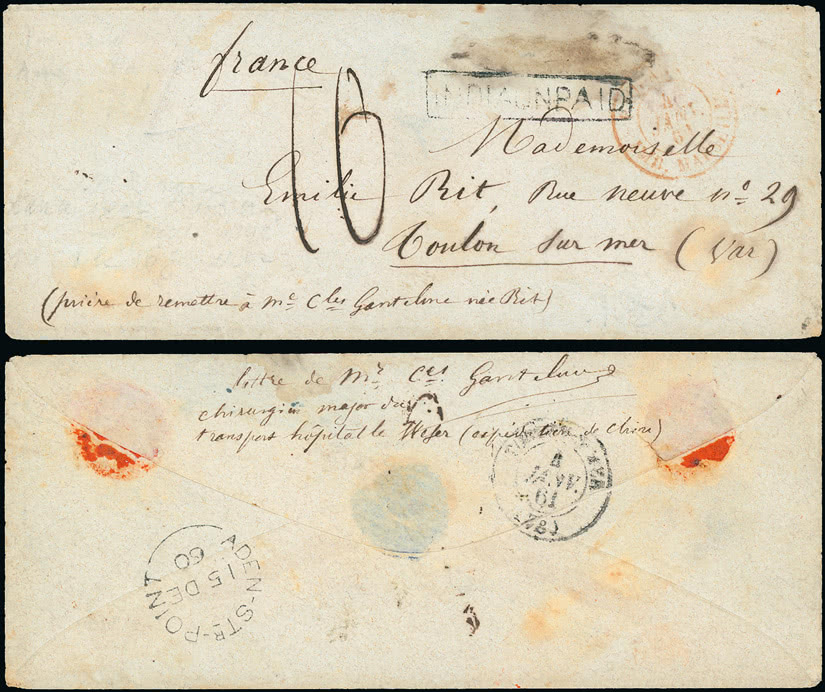 france
16
INDIA UNPAID
JANV.
61
Mademoiselle
Emilie Rit, Rue neuve nº 29
Toulon sur mer (Var)
(prière de remettre à mᵉ Cˡᵉˢ Ganteline née Rit)
lettre de Mʳ Cᵉˢ Ganteline
chirurgien major du
transport hôpital le Weser (expédition de Chine)
JANV.
61
(78)
ADEN-STR-POINT
15 DE
60